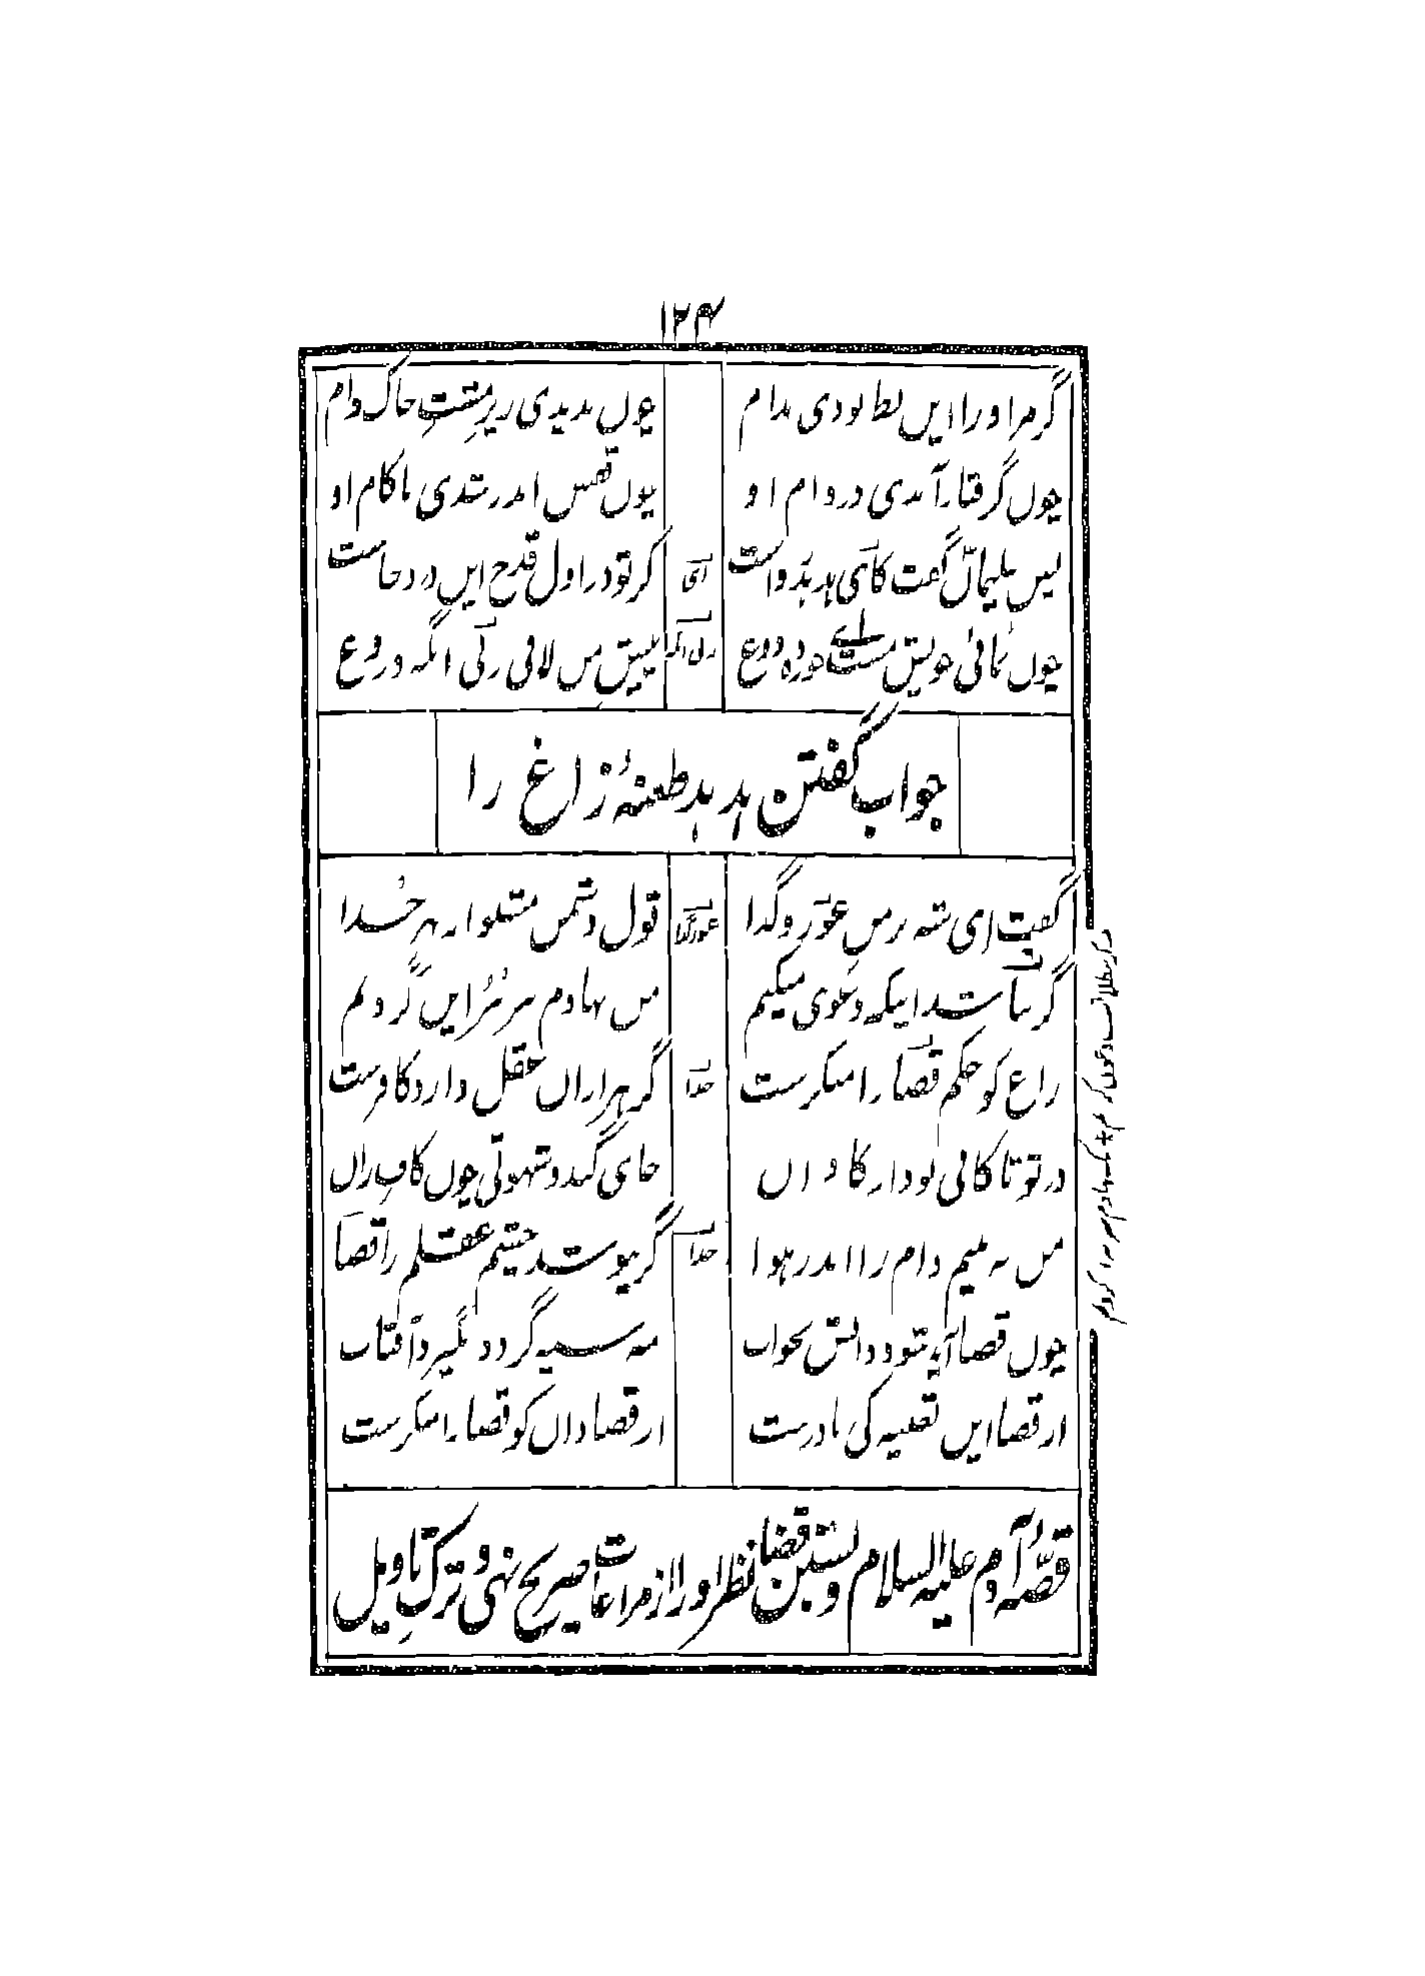 ۱۲۴
گر مر او را این نظر بودی مدام چون ندیدی زیر مشتِ خاک دام
چون گرفتار آمدی در دام او چون قفس اندر شدی ناکام او
پس سلیمان گفت کای هدهد رواست کز تو در اول قدح این درد خاست
ای
چون نمائی خویش مستی ای خورده دوغ پیش من لافی زنی انگه دروغ
جواب گفتن هدهد طعنهٔ زاغ را
گفت ای شه بر من عور و گدا قول دشمن مشنو از بهر خُدا
عور گدا
گر نباشد اینکه دعوی میکنم من نهادم سر بُبُر این گردنم
زاغ کو حکم قضا را منکرست گر هزاران عقل دارد کافرست
خدا
در تو تا کافی بود از کافران جای گند و شهوتی چون کافِ ران
من به بینم دام را اندر هوا گر نپوشد چشم عقلم را قضا
خدا
چون قضا آید شود دانش بخواب مه سیه گردد بگیرد آفتاب
از قضا این تعبیه کی نادرست از قضا دان کو قضا را منکرست
قصّهٔ آدم علیه السلام و بستن قضا نظر او را از مراعات صریح نهی و ترکِ تاویل